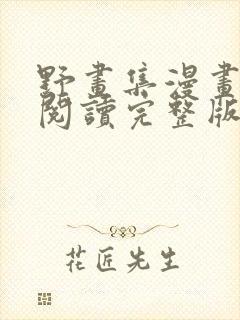 野畫集漫畫
閱讀完整版
花匠先生